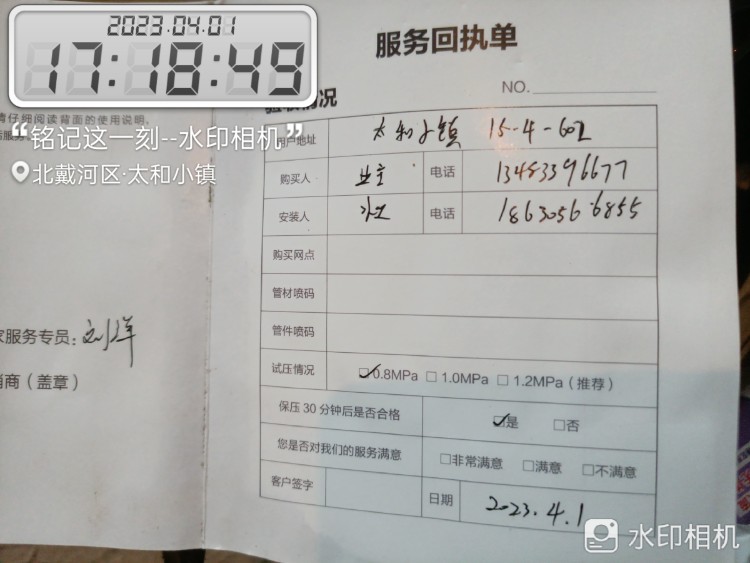 2023.04.01
17:18:49
“铭记这一刻--水印相机”
北戴河区·太和小镇
服务回执单
NO.
验收情况
请仔细阅读背面的使用说明。
用户地址 太和小镇 15-4-602
购买人 业主 电话 13483396677
安装人 电话 18630566855
购买网点
管材喷码
管件喷码
家服务专员：刘洋
销商（盖章）
试压情况 0.8MPa 1.0MPa 1.2MPa（推荐）
保压30分钟后是否合格 是 否
您是否对我们的服务满意 非常满意 满意 不满意
客户签字 日期 2023.4.1
水印相机